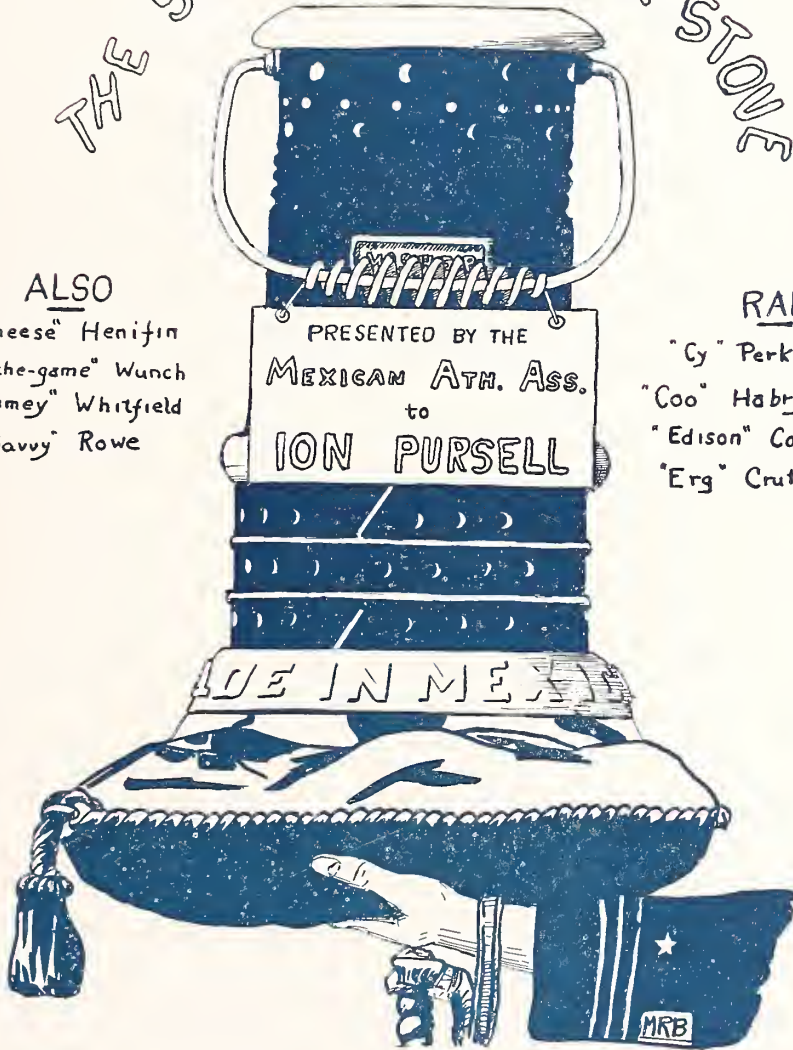 THE S STOVE
ALSO
heese" Henifin
he-game" Wunch
mey" Whitfield
avvy" Rowe
RA
"Cy" Perk
"Coo" Habr
"Edison" Co
"Erg" Crut
PRESENTED BY THE
MEXICAN ATH. ASS.
to
ION PURSELL
ADE IN MEXIC
MRB